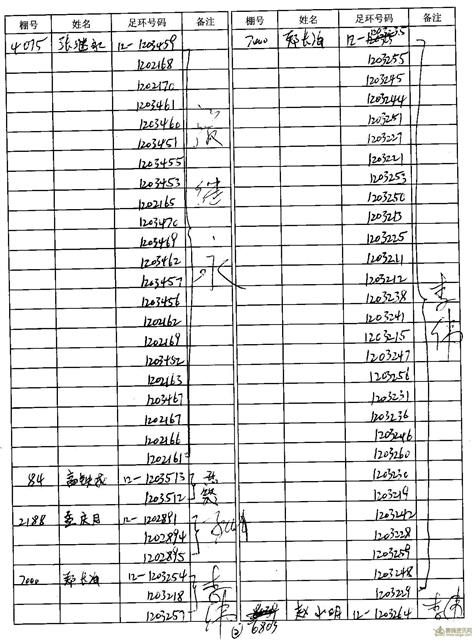 棚号 姓名 足环号码 备注
4075 张继红 12-1203459
1202168
1202170
1203461
1203460
1203451
1203455
1203453
1202165
1203470
1203469
1203462
1203457
1203456
1202162
1202169
1203452
1202163
1203467
1202167
1202166
1202161
84 12-1203513
1203512
2188 孟庆月 12-1202891
1202894
1202895
7000 郑长海 12-1203254
1203218
1203257
棚号 姓名 足环号码 备注
7000 郑长海 12-
1203255
1203245
1203244
1203251
1203227
1203221
1203253
1203250
1203225
1203211
1203212
1203238
1203241
1203215
1203247
1203256
1203231
1203236
1203246
1203260
1203230
1203219
1203242
1203228
1203259
1203248
1203229
6809 赵小明 12-1203264